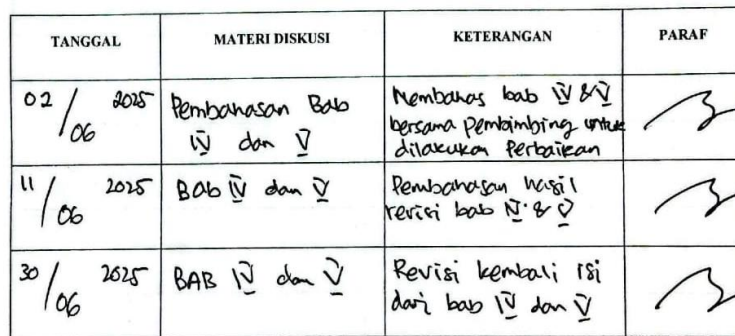 TANGGAL MATERI DISKUSI KETERANGAN PARAF
02/06 2025
Pembahasan Bab
IV dan V
Membahas bab IV & V
bersama pembimbing untuk
dilakukan Perbaikan
11/06 2025
BAb IV dan V
Pembahasan hasil
revisi bab IV & V
30/06 2025
BAB IV dan V
Revisi kembali isi
dari bab IV dan V